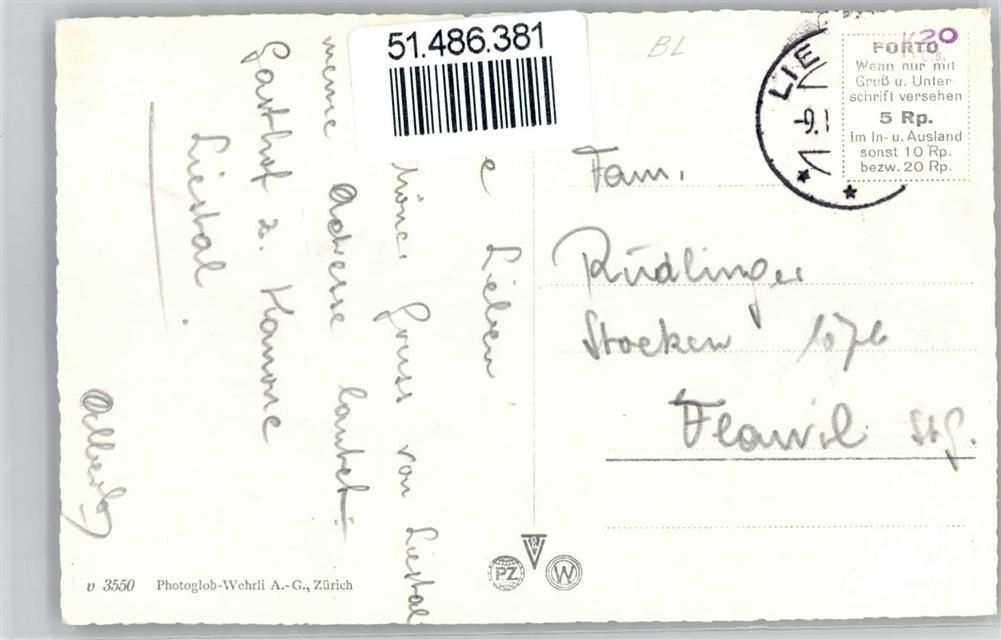 51.486.381
BL
LIE
-9.1
K20
PORTO
Wenn nur mit
Gruß u. Unter-
schrift versehen
5 Rp.
Im In- u. Ausland
sonst 10 Rp.
bezw. 20 Rp.
e Lieben
Gruss von Liestal
meine Adresse lautet:
Gasthof z. Kanone
Liestal.
Albert
Fam.
Rüdlinger
Stocken 107b
Flawil St.G.
v 3550 Photoglob-Wehrli A.-G., Zürich
PZ
W